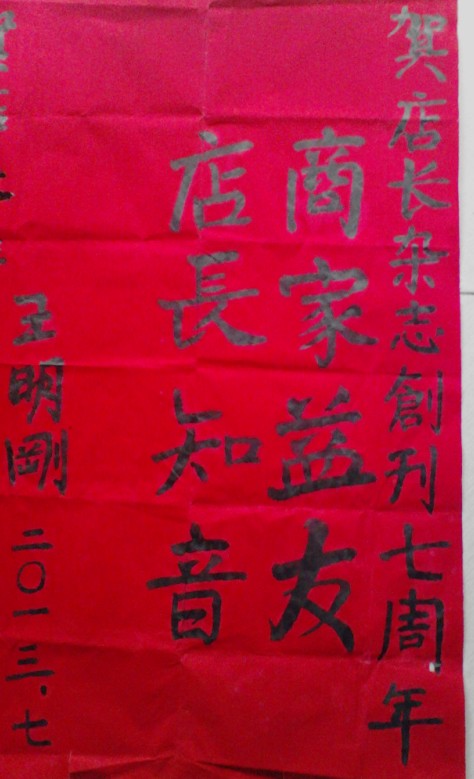 贺店长杂志創刊七周年
商家益友
店長知音
王明剛 二〇一三.七